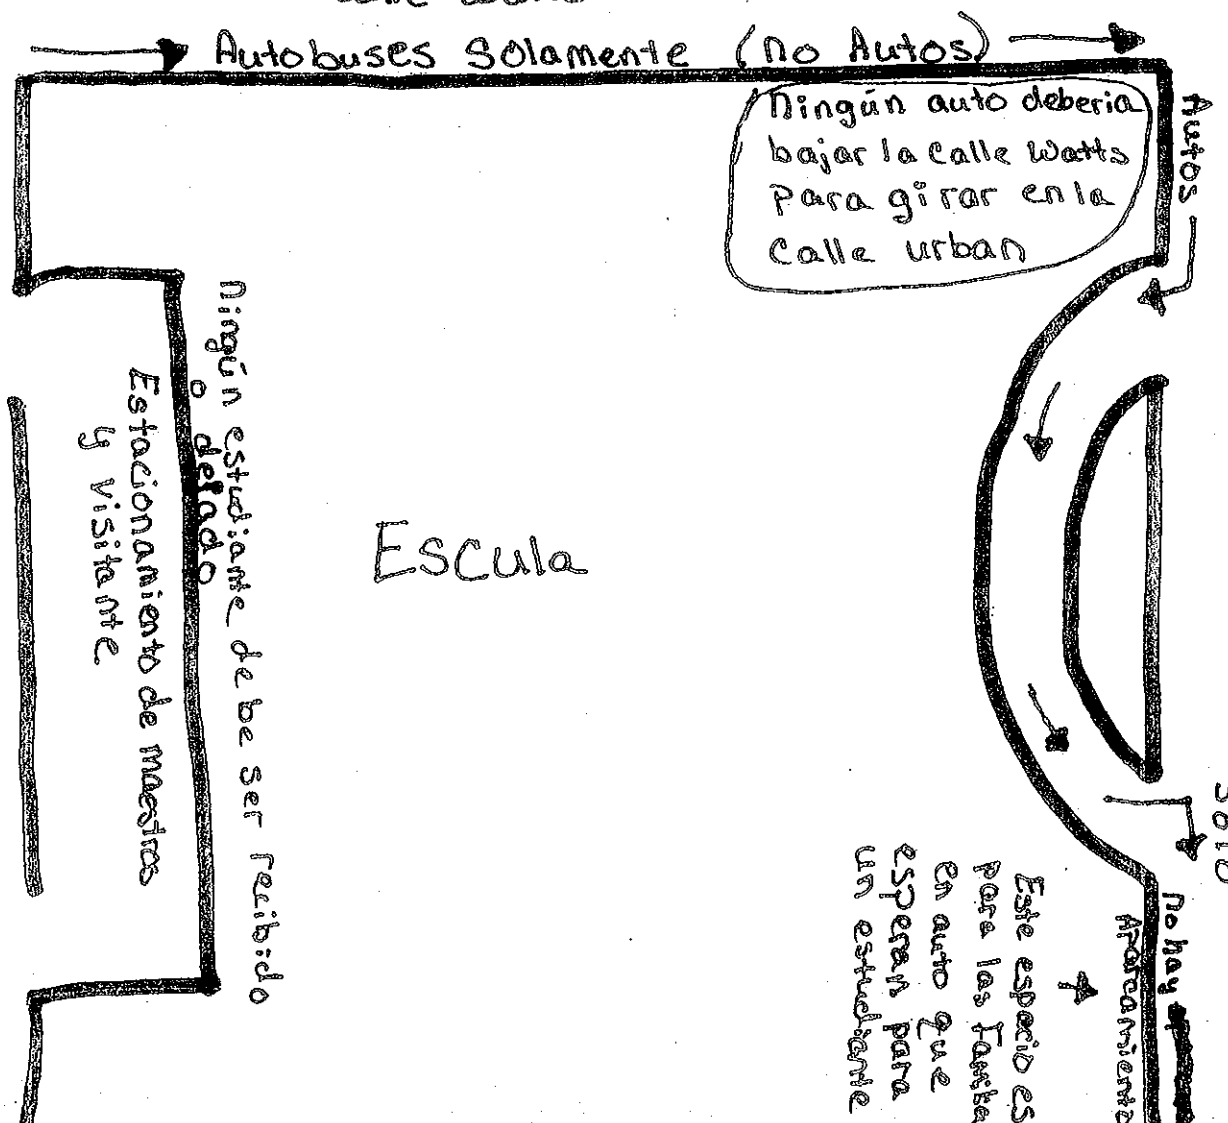 Autobuses Solamente (no Autos)
Ningún auto deberia
bajar la calle Watts
para girar en la
calle urban
Autos
Ningún estudiante debe ser recibido
o dejado
Estacionamiento de maestros
y visitante
Escula
Solo
No hay
Aparcamiento
Este espacio es
para las
en auto que
esperan para
un estudiante